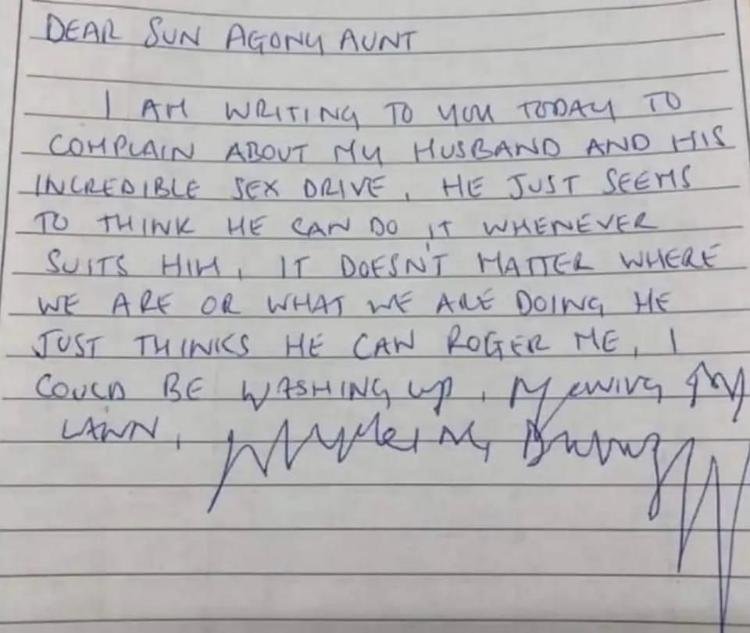 DEAR SUN AGONY AUNT
I AM WRITING TO YOU TODAY TO
COMPLAIN ABOUT MY HUSBAND AND HIS
INCREDIBLE SEX DRIVE, HE JUST SEEMS
TO THINK HE CAN DO IT WHENEVER
SUITS HIM, IT DOESN'T MATTER WHERE
WE ARE OR WHAT WE ARE DOING HE
JUST THINKS HE CAN ROGER ME, I
COULD BE WASHING UP,
LAWN,